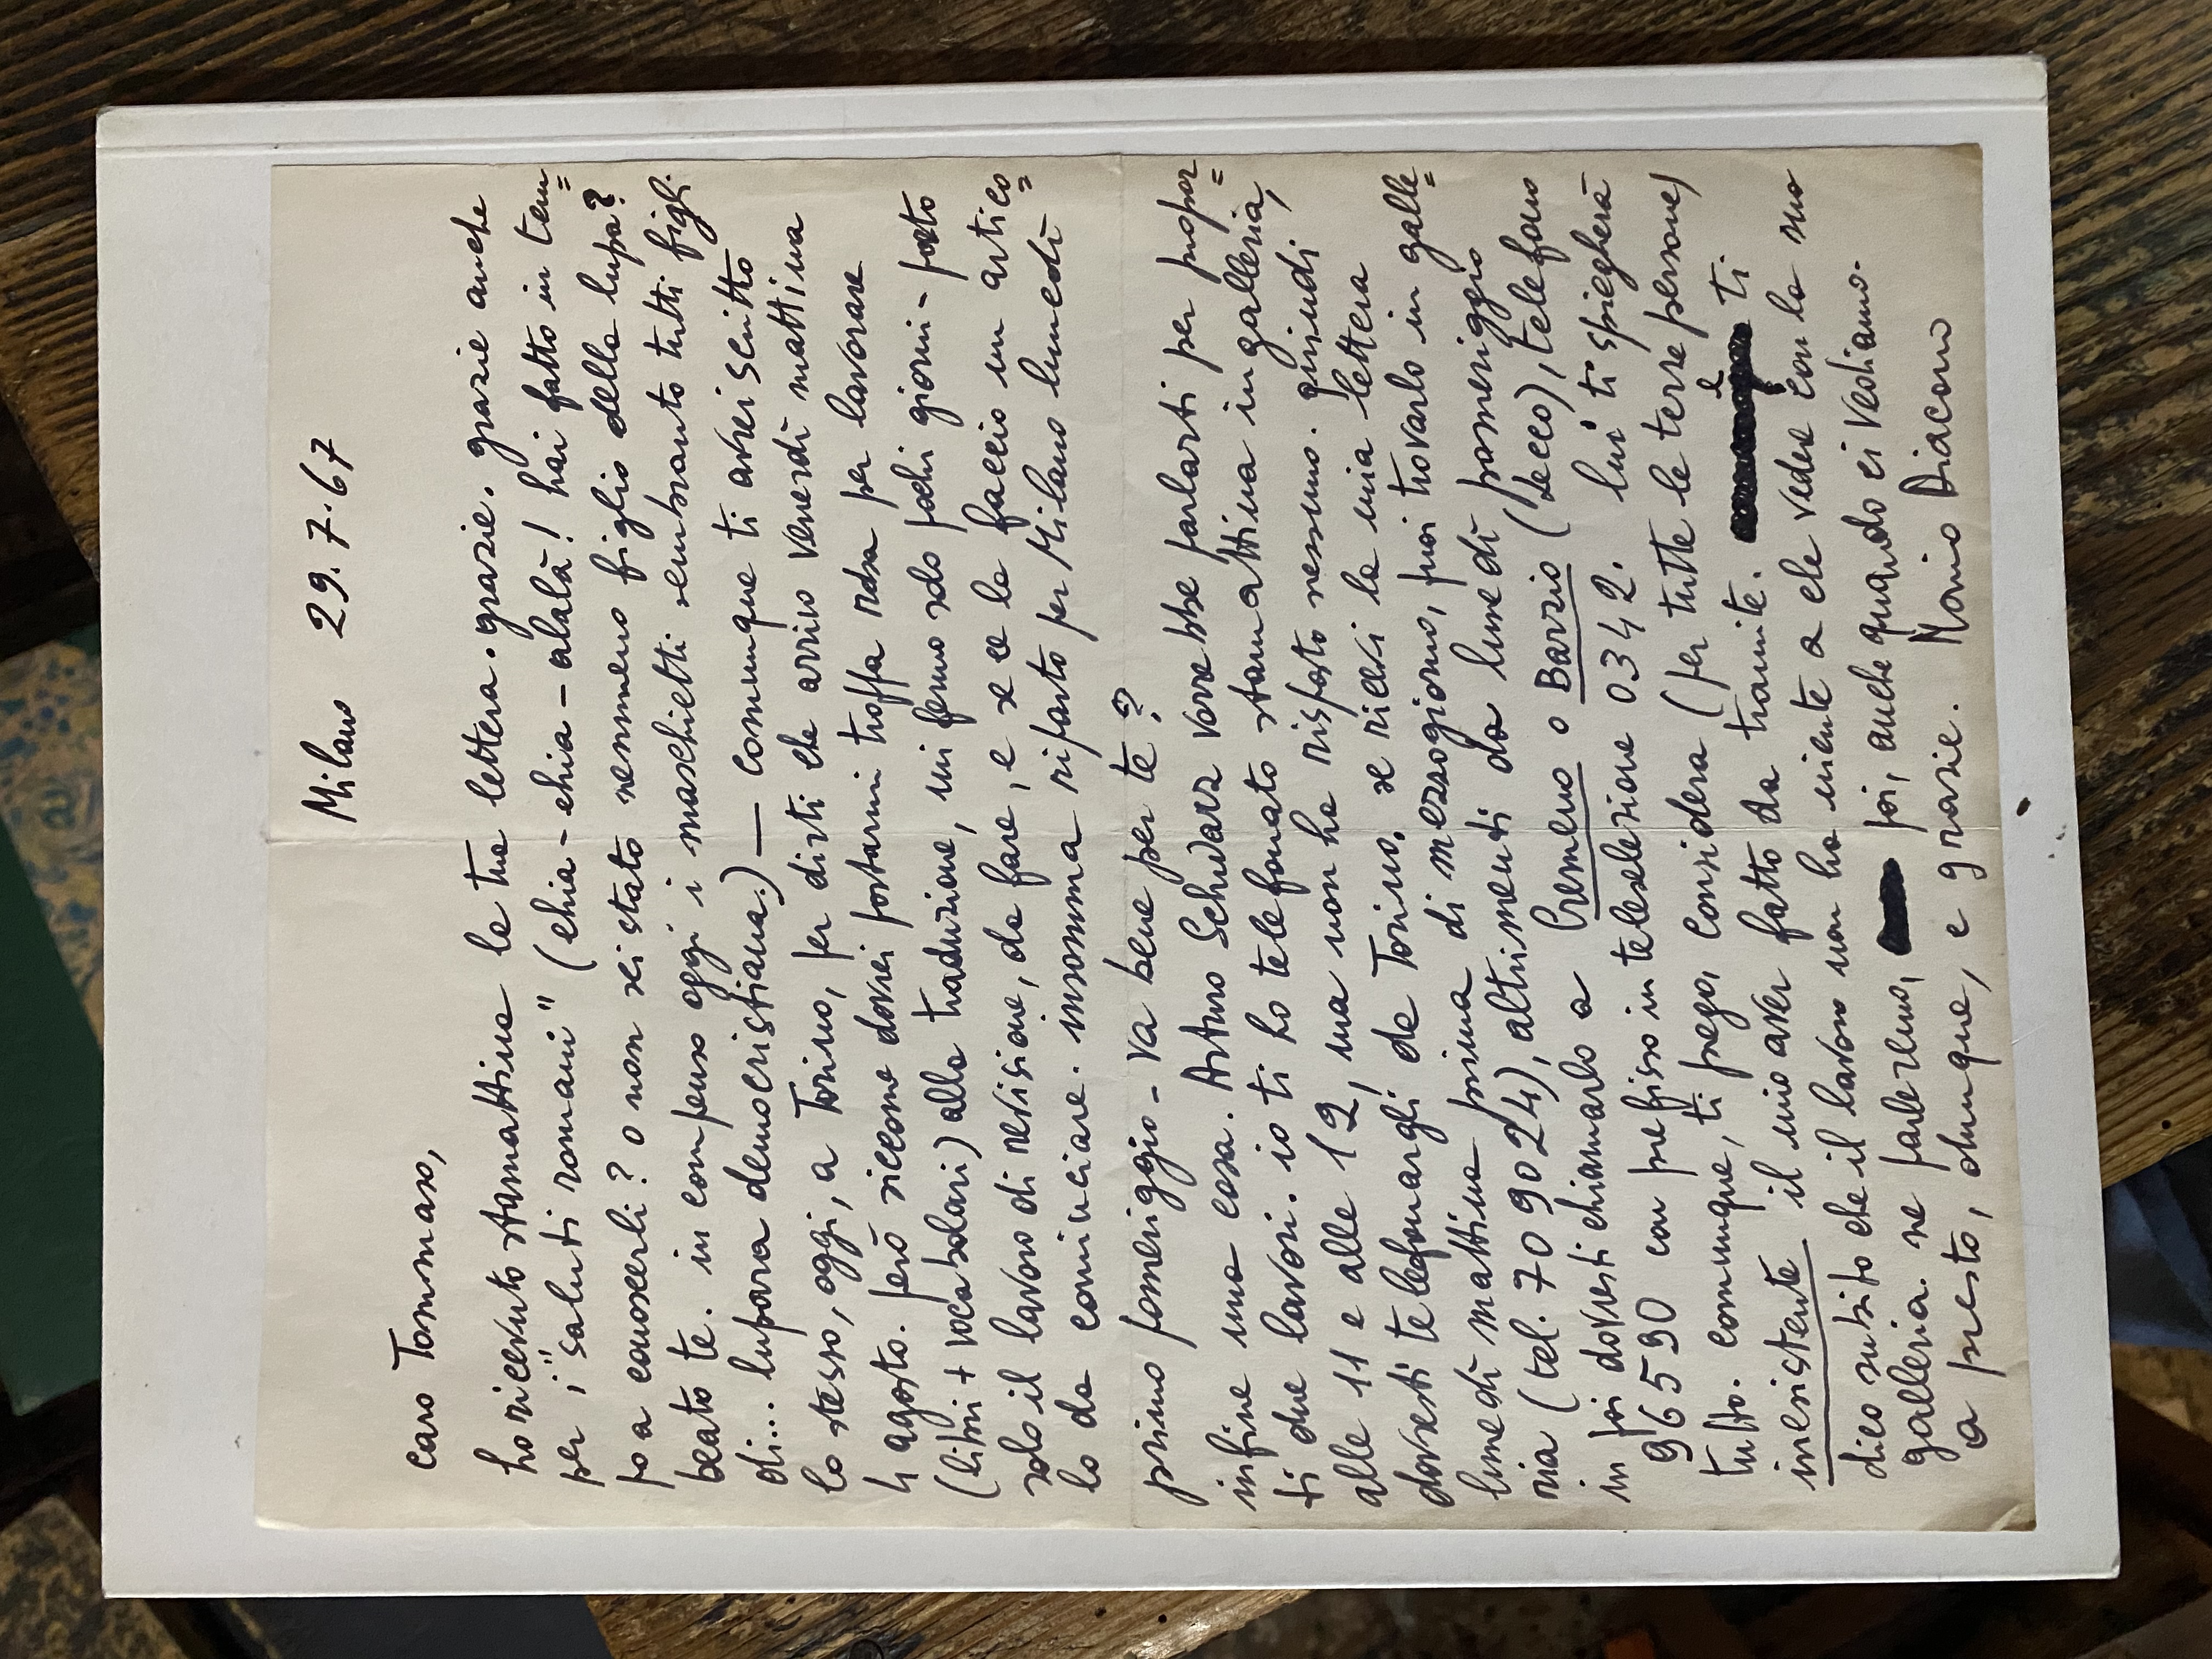 Milano 29.7.67
caro Tommaso,
ho ricevuto stamattina la tua lettera. grazie. grazie anche
per i "saluti romani" (chia-chia-alalà! hai fatto in tem=
po a conoscerli? o non sei stato nemmeno figlio della lupa?
beato te. in compenso oggi i maschietti sembrano tutti figli
di... lupara democristiana.) — comunque ti avrei scritto
lo stesso, oggi, a Torino, per dirti che arrivo venerdì mattina
4 agosto. però siccome dovrei portarmi troppa roba per lavorare
(libri + vocabolari) alla traduzione, mi fermo solo pochi giorni - porto
solo il lavoro di revisione, da fare, e se ce la faccio un artico=
lo da cominciare. insomma riparto per Milano lunedì
primo pomeriggio - va bene per te?
infine una cosa. Arturo Schwarz vorrebbe parlarti per propor=
ti due lavori. io ti ho telefonato stamattina in galleria,
alle 11 e alle 12, ma non ha risposto nessuno. quindi
dovresti telefonargli da Torino. se ricevi la mia lettera
lunedì mattina prima di mezzogiorno, puoi trovarlo in galle=
ria (tel. 709024), altrimenti da lunedì pomeriggio
in poi dovresti chiamarlo a Cremeno o Barzio (Lecco), telefono
96590 con prefisso in teleselezione 0342. lui ti spiegherà
tutto. comunque, ti prego, considera (per tutte le terze persone)
inesistente il mio aver fatto da tramite. e ti
dico subito che il lavoro non ha niente a che vedere con la sua
galleria. ne parleremo, poi, anche quando ci vediamo.
a presto, dunque, e grazie. Mario Diacono